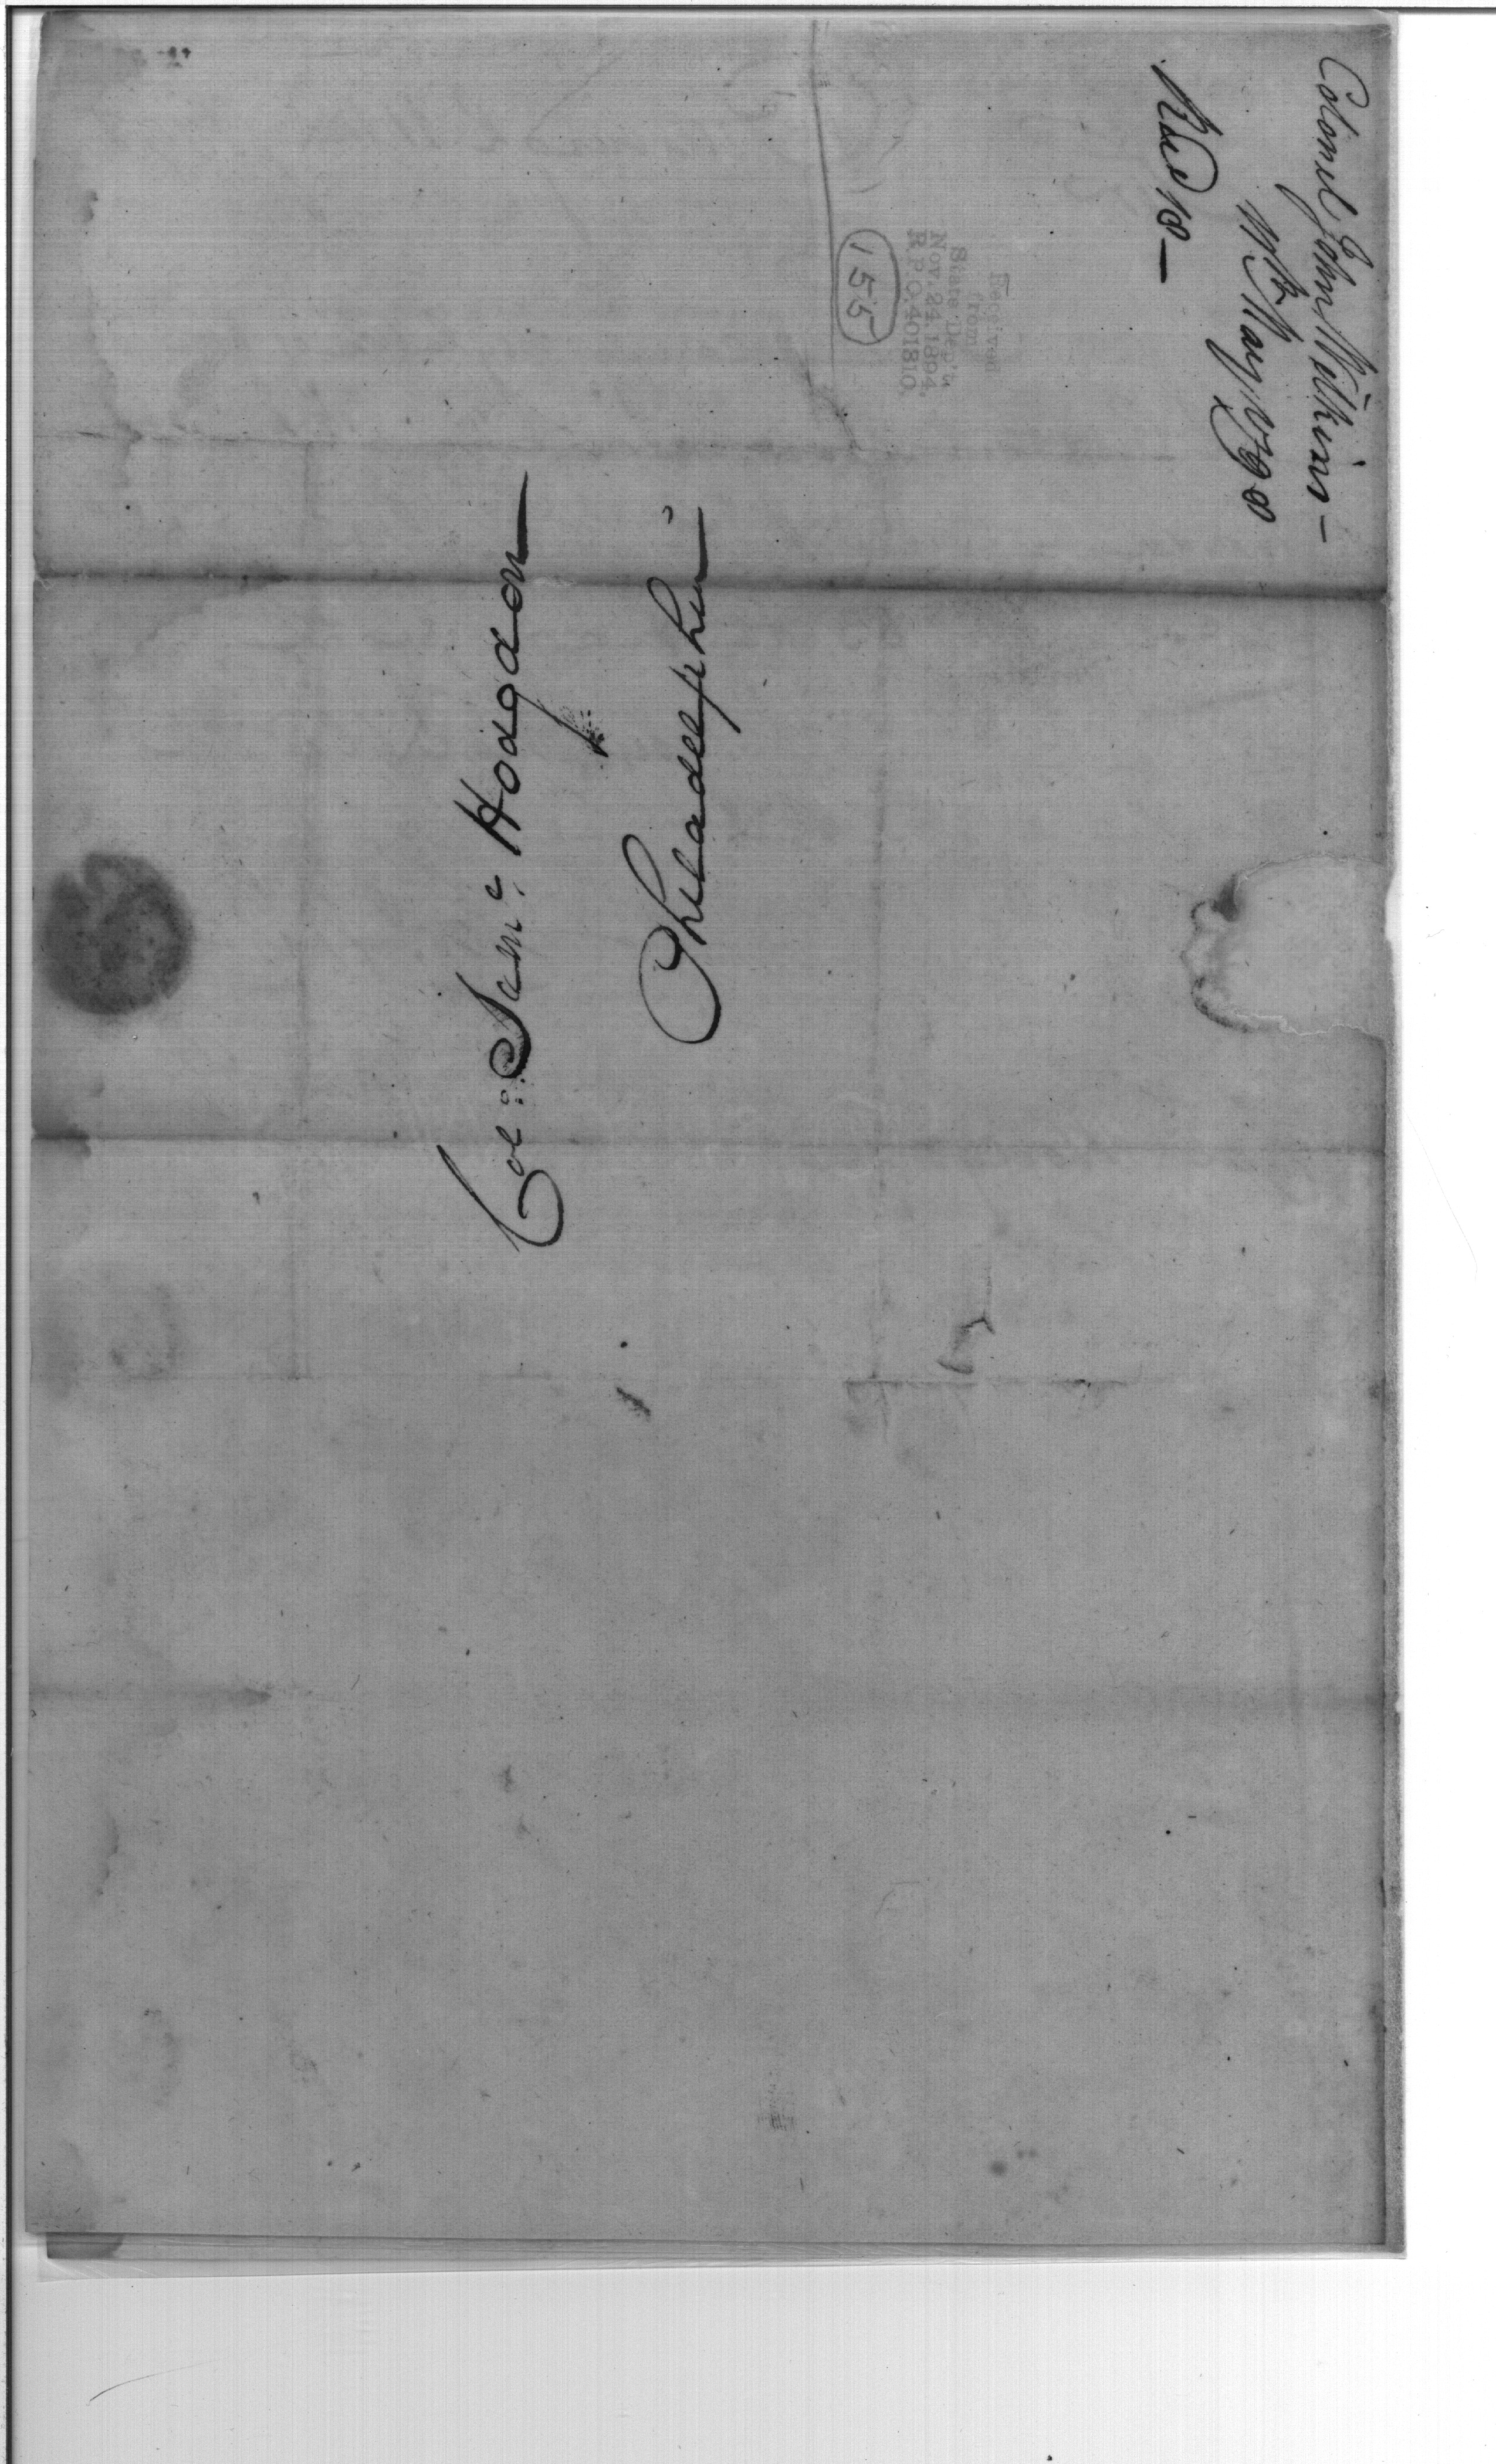 Colonel John Wilkins —
May 1798
Recd 18 —
Received
from
State Dep't,
Nov. 24, 1894,
R.P.O. 401810.
155
Col: Saml. Hodgdon
Philadelphia